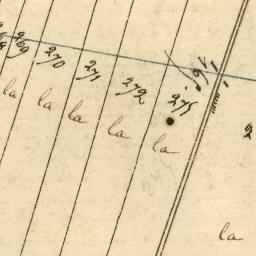 269
270
271
272
275
la
la
la
la
la
2
la